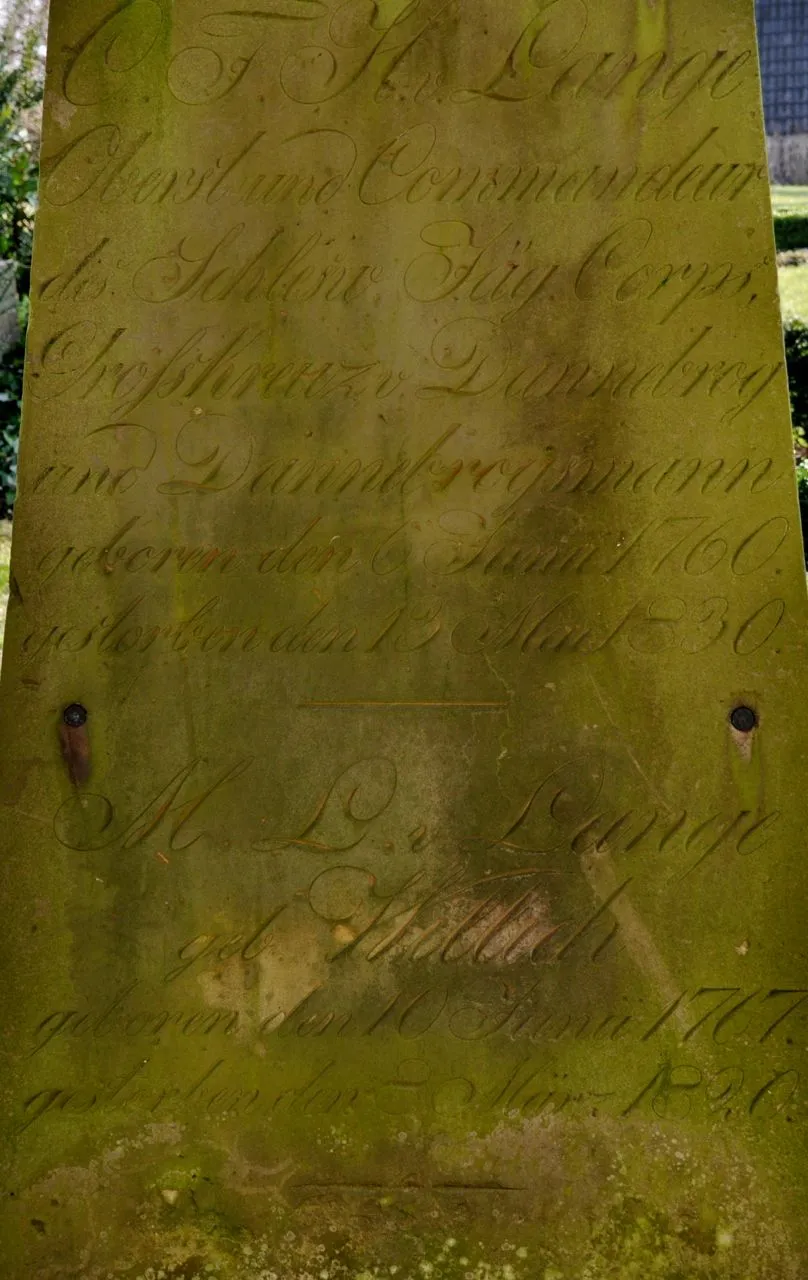 C. F. H. v. Lange
Oberst und Commandeur
des Schlesw. Jäg. Corps,
Großkreuz v. Dannebrog
und Dannebrogsmann
geboren den 6 Junii 1760.
gestorben den 13 Mai 1830.
M. L. v. Lange
geb.
geboren den 10 Junii 1767.
gestorben den März 1820.